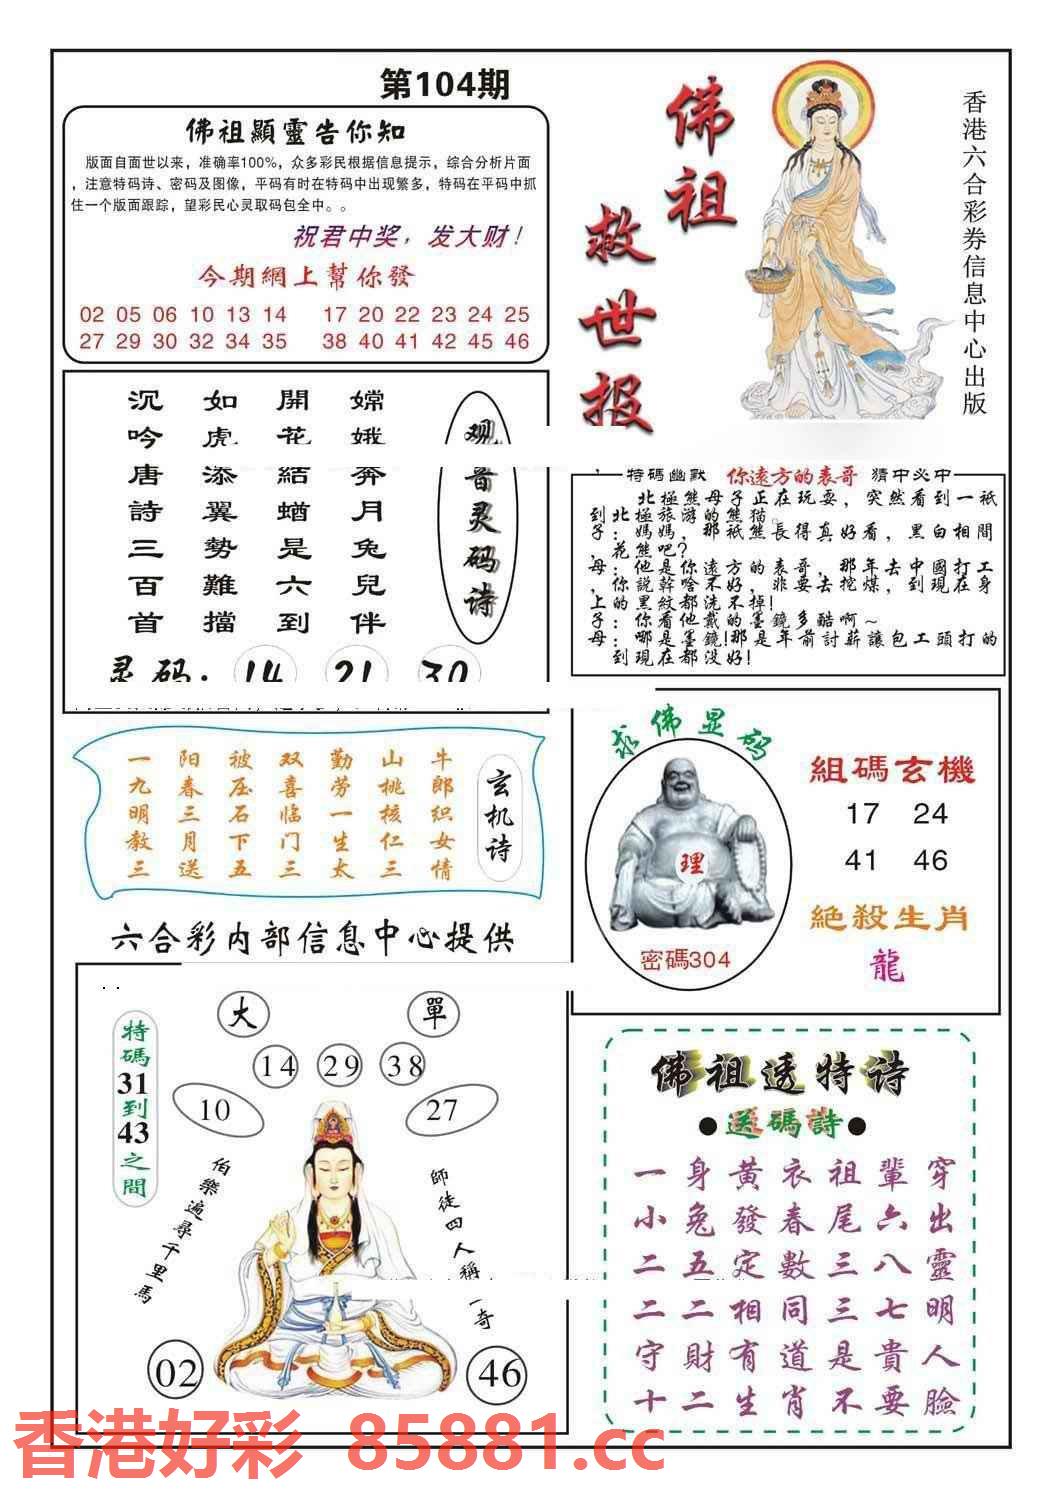 第104期
佛祖顯靈告你知
版面自面世以来，准确率100%，众多彩民根据信息提示，综合分析片面
，注意特码诗、密码及图像，平码有时在特码中出现繁多，特码在平码中抓
住一个版面跟踪，望彩民心灵取码包全中。。
祝君中奖，发大财！
今期網上幫你發
02 05 06 10 13 14 17 20 22 23 24 25
27 29 30 32 34 35 38 40 41 42 45 46
佛祖
救世报
香港六合彩券信息中心出版
观音灵码诗
嫦娥奔月兔兒伴
開花結蝤是六到
如虎添翼勢難擋
沉吟唐詩三百首
灵码：14 21 30
特碼幽默 你遠方的表哥 猜中必中
北極熊母子正在玩耍，突然看到一祇
到北極旅游的熊猫。
子：媽媽，那祇熊長得真好看，黑白相間
，花熊吧？
母：他是你遠方的表哥，那年去中國打工
，你說幹啥不好，非要去挖煤，到現在身
上的黑紋都洗不掉！
子：你看他戴的墨鏡多酷啊~
母：哪是墨鏡！那是年前討薪讓包工頭打的
到現在都没好！
玄机诗
牛郎织女情
山桃核仁三
勤劳一生太
双喜临门三
被压石下五
阳春三月送
一九明教三
求佛显码
理
密碼304
組碼玄機
17 24
41 46
絕殺生肖
龍
六合彩内部信息中心提供
特碼31到43之間
大 單
14 29 38
10 27
伯樂遍尋千里馬
師徒四人稱一奇
02 46
佛祖透特诗
●送碼詩●
一身黃衣祖輩穿
小兔發春尾六出
二五定數三八靈
二二相同三七明
守財有道是貴人
十二生肖不要臉
香港好彩 85881.cc